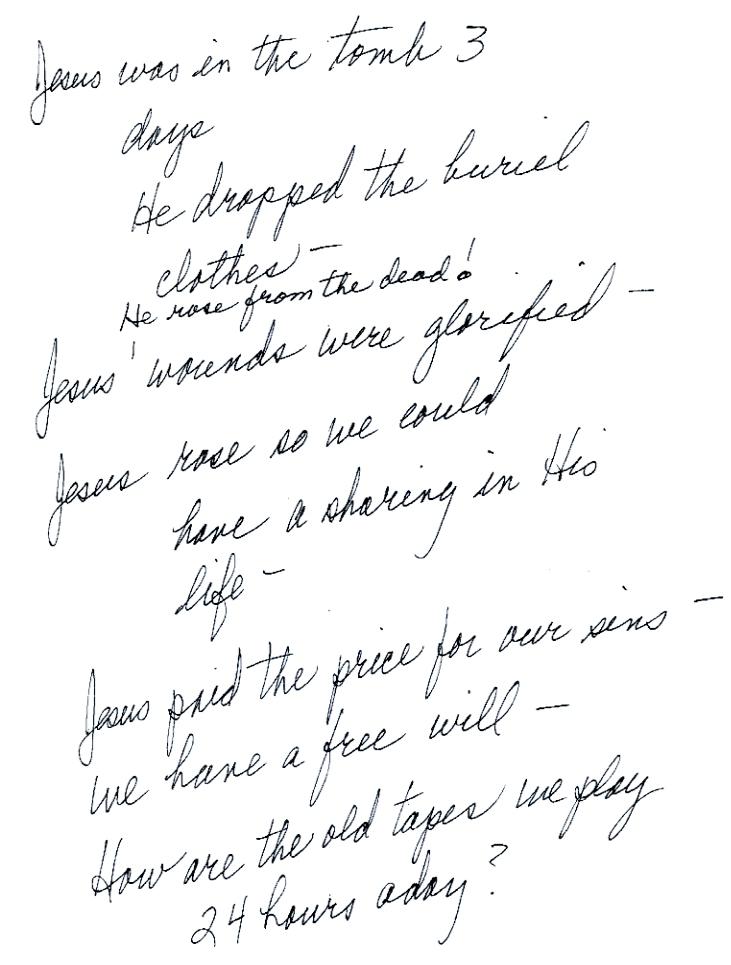 Jesus was in the tomb 3
days
He dropped the buriel
clothes –
He rose from the dead!
Jesus' wounds were glorified –
Jesus rose so we could
have a sharing in His
life –
Jesus paid the price for our sins –
we have a free will –
How are the old tapes we play
24 hours aday?